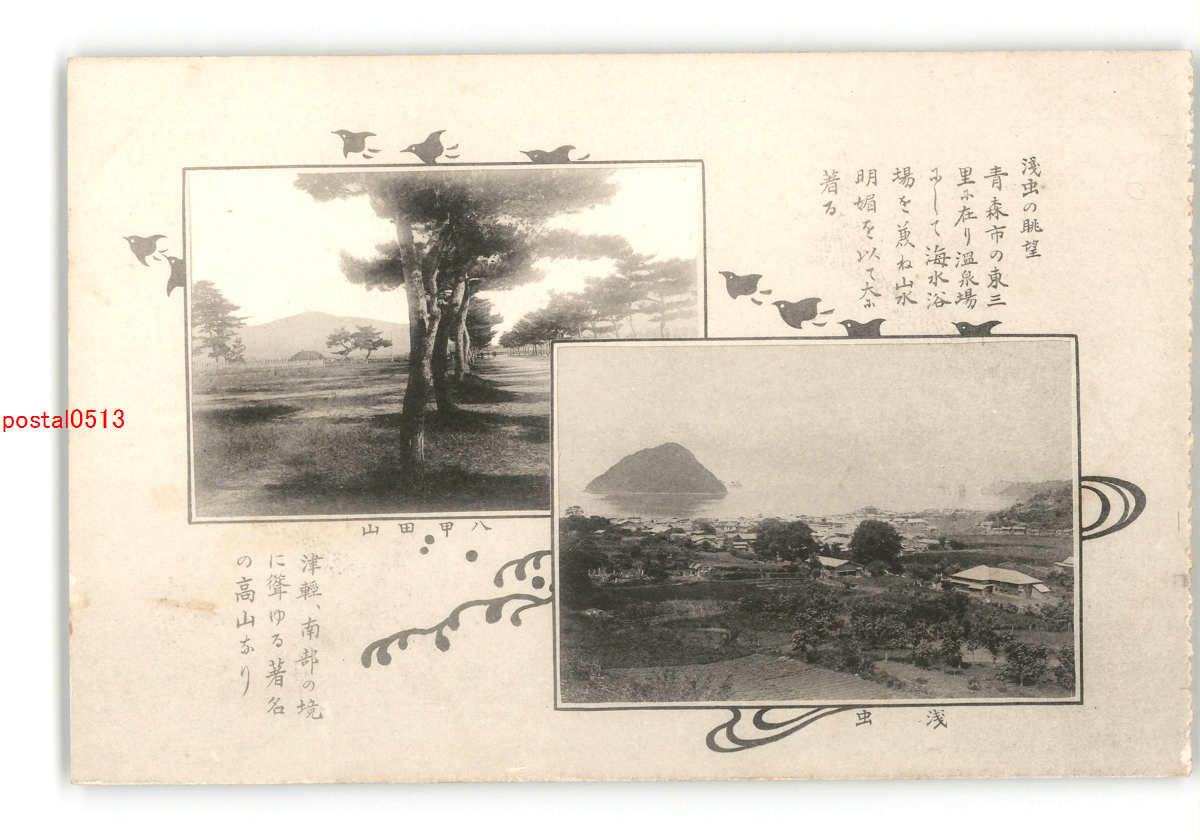 淺虫の眺望
青森市の東三
里に在り溫泉場
にして海水浴
場を兼ね山水
明媚を以て大に
著る
八甲田山
津輕、南部の境
に聳ゆる著名
の高山なり
淺虫
postal0513